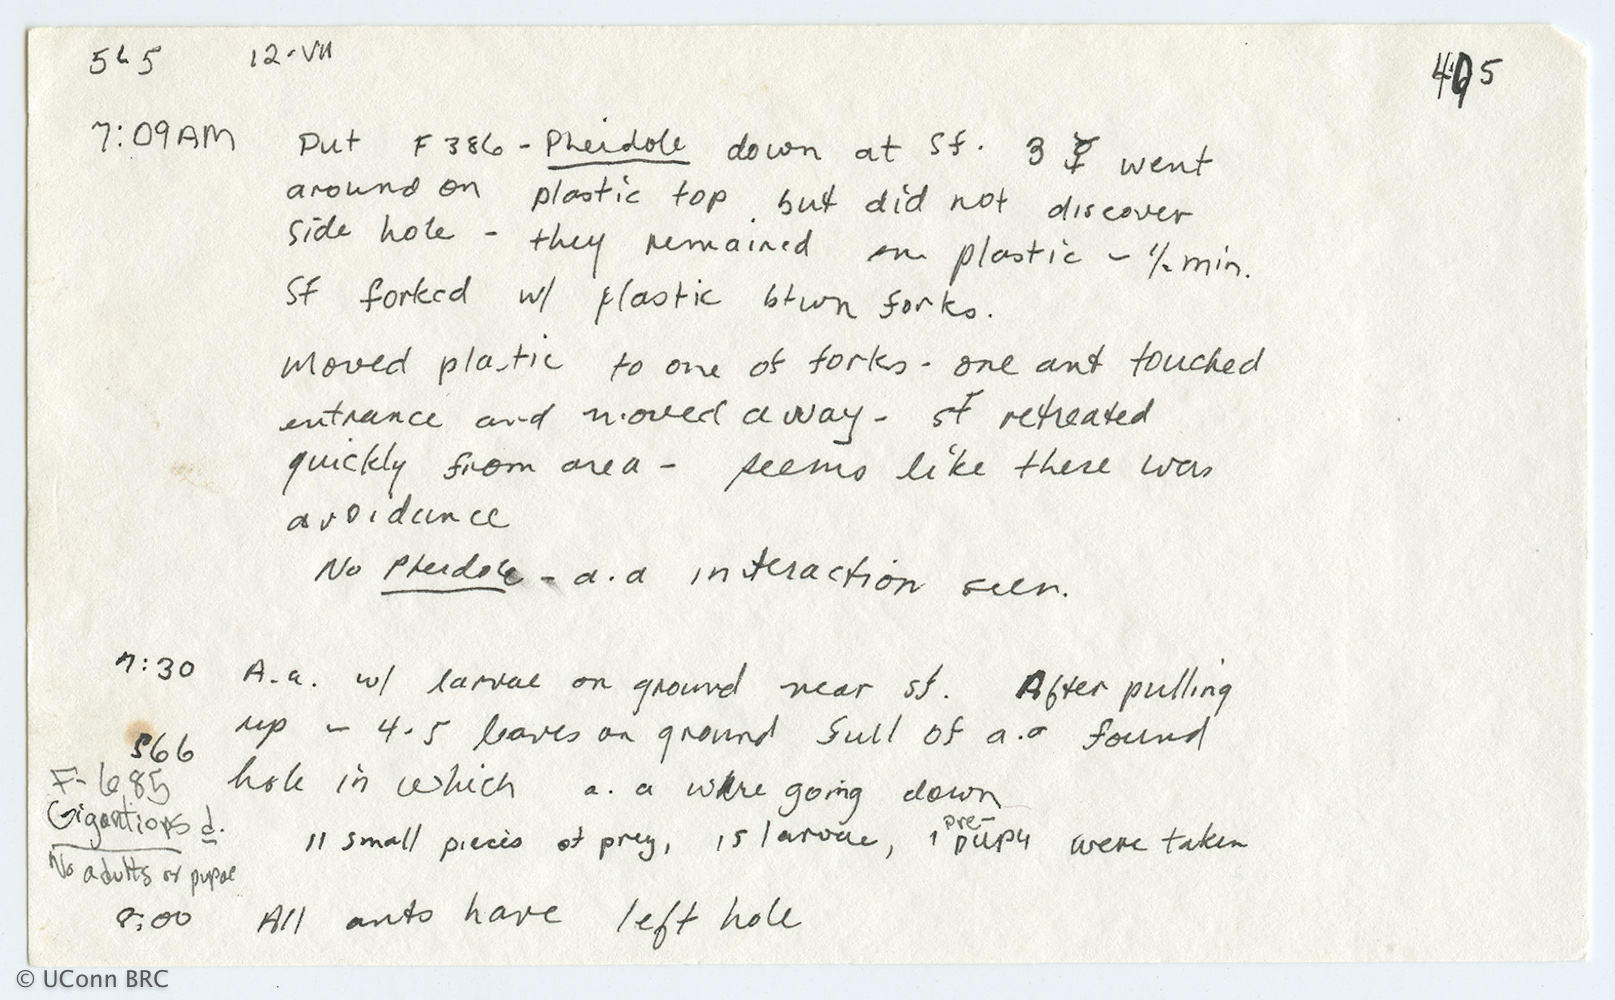 565 12-VII 405
7:09AM Put F386 - Pheidole down at Sf. 3 ☿ went
around on plastic top but did not discover
side hole - they remained on plastic ~ ½ min.
Sf forked w/ plastic btwn forks.
Moved plastic to one of forks - one ant touched
entrance and moved away - Sf retreated
quickly from area - seems like there was
avoidance
No Pheidole - a.a interaction seen.
7:30 A.a. w/ larvae on ground near sf. After pulling
up ~ 4-5 leaves on ground full of a.a found
566 hole in which a.a were going down
F-685
Gigantiops d.
11 small pieces of prey, 15 larvae, 1 pre-pupa were taken
No adults or pupae
8:00 All ants have left hole
© UConn BRC